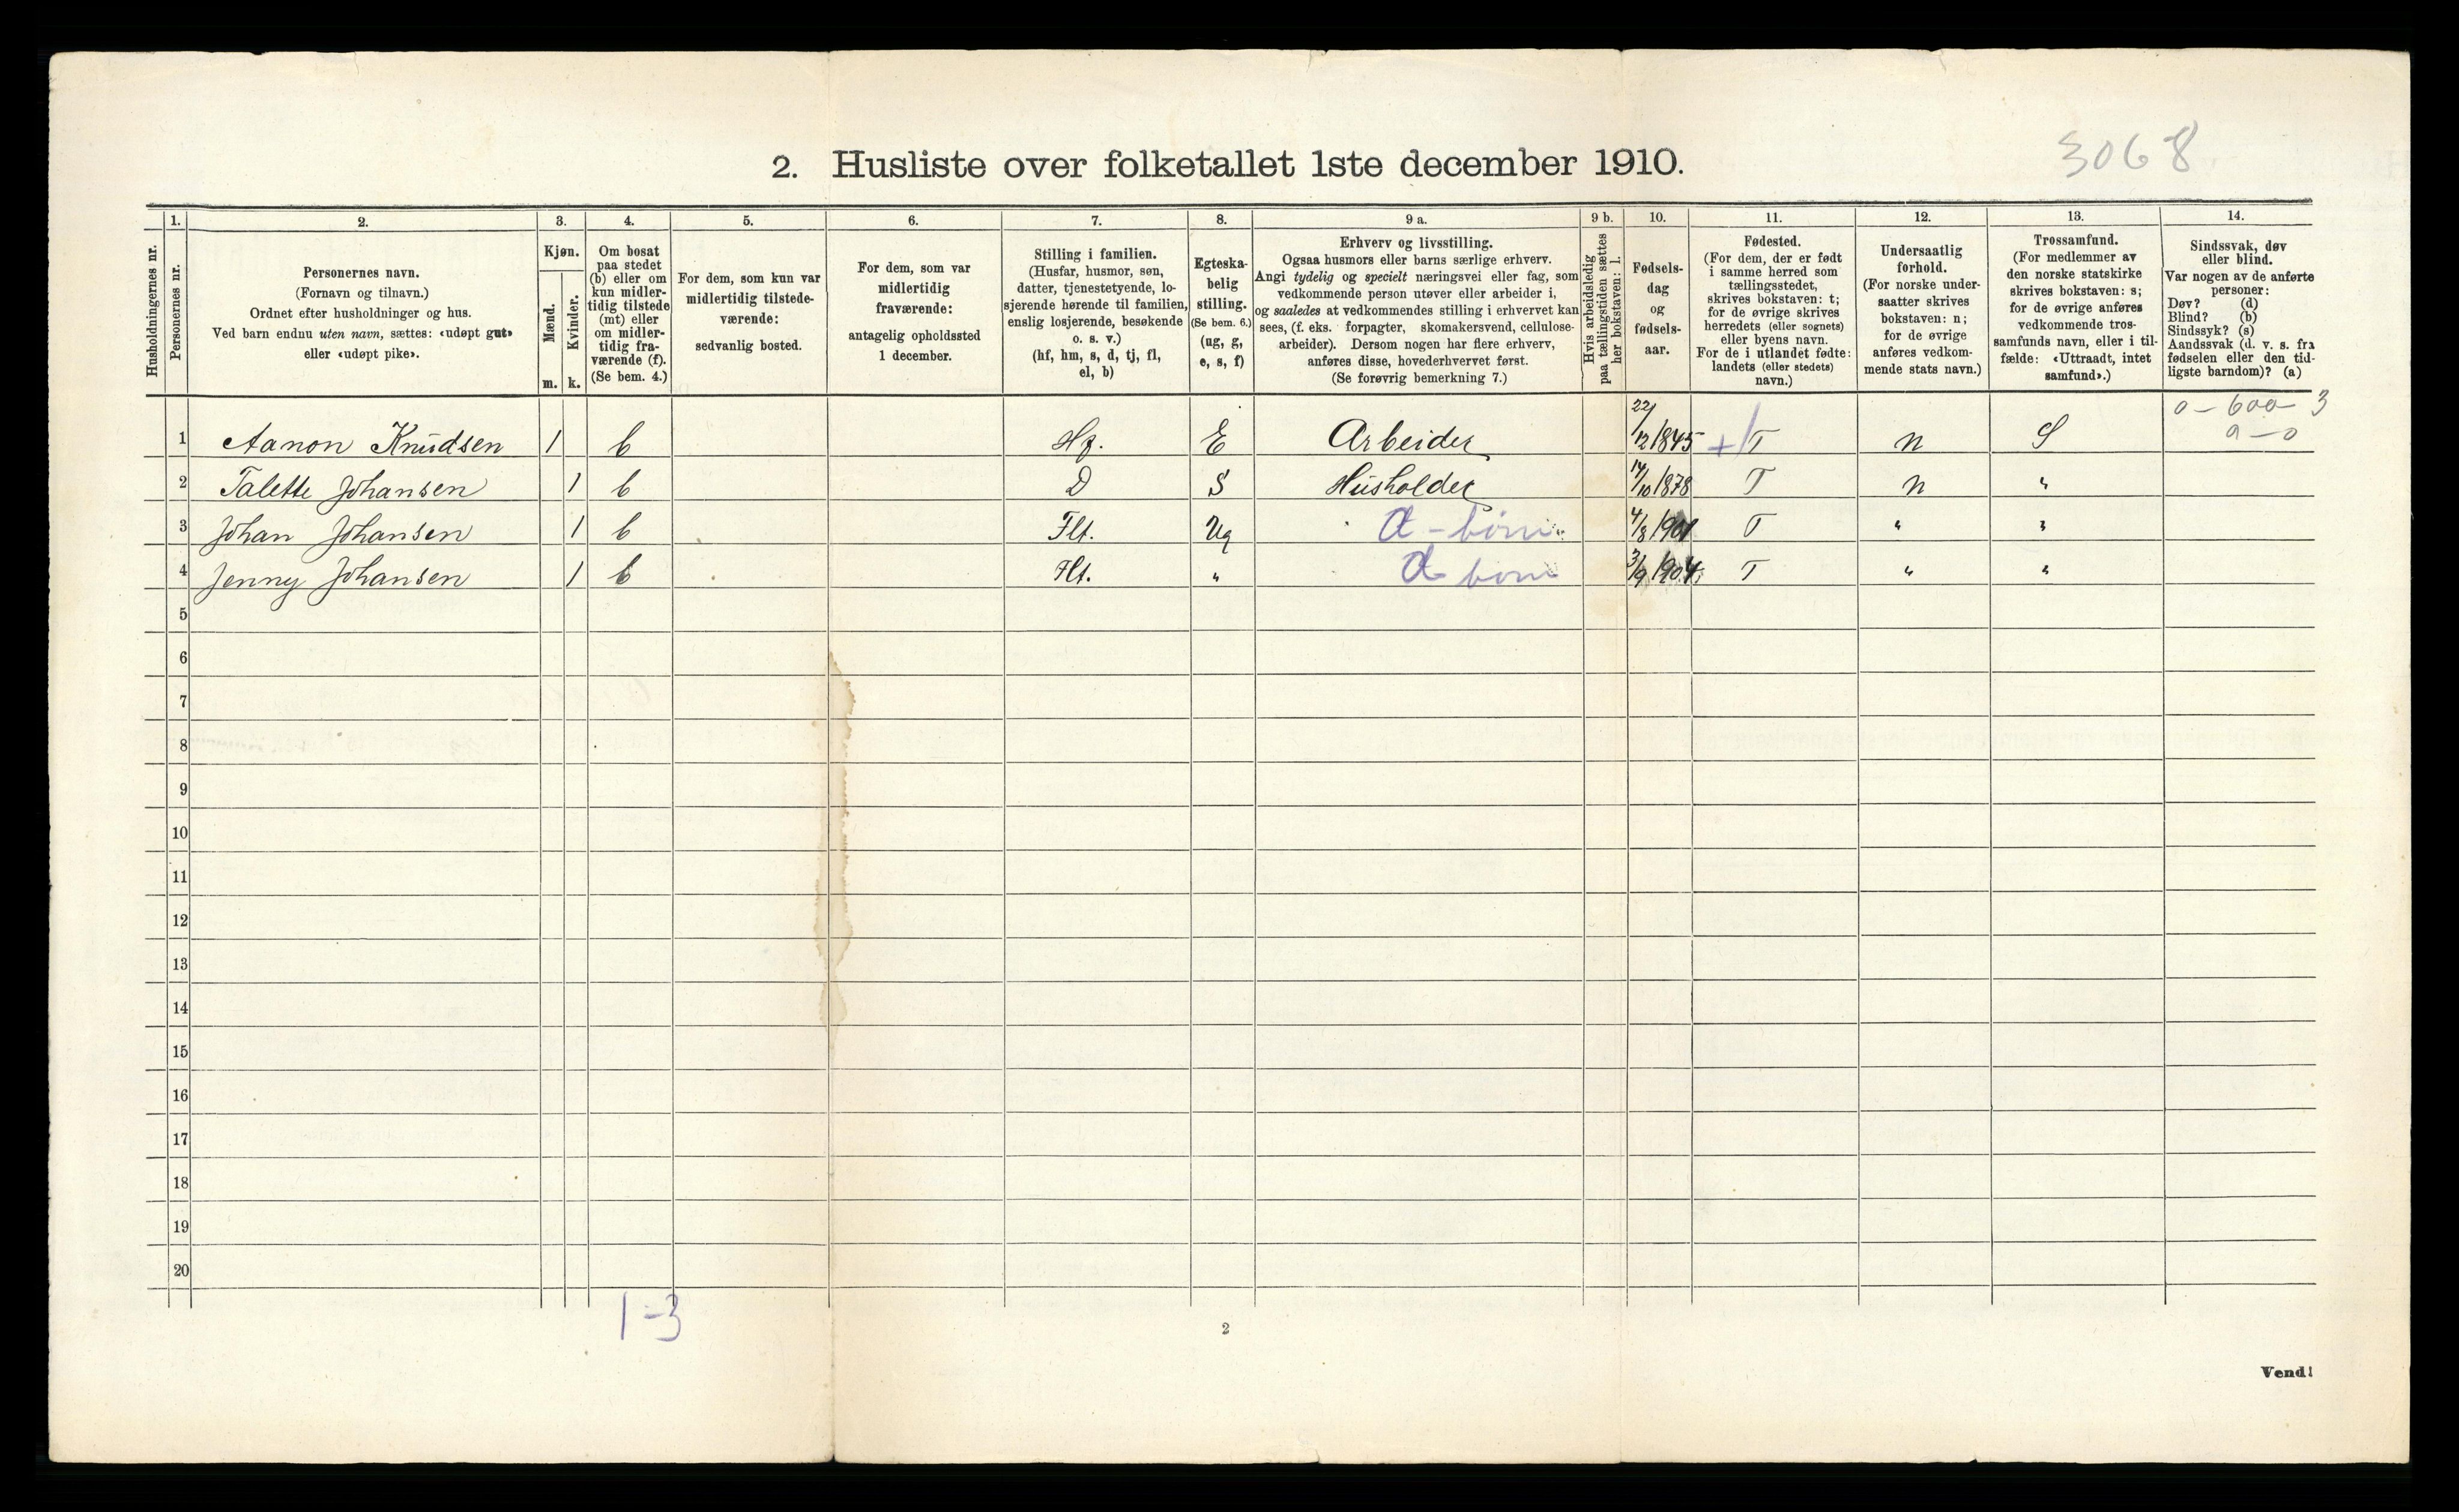 3068
2. Husliste over folketallet 1ste december 1910.
Husholdningernes nr.
1.
Personernes nr.
2.
Personernes navn.
(Fornavn og tilnavn.)
Ordnet efter husholdninger og hus.
Ved barn endnu uten navn, sættes: «udøpt gut»
eller «udøpt pike».
3.
Kjøn.
Mænd.
Kvinder.
m. k.
4.
Om bosat
paa stedet
(b) eller om
kun midler-
tidig tilstede
(mt) eller
om midler-
tidig fra-
værende (f).
(Se bem. 4.)
5.
For dem, som kun var
midlertidig tilstede-
værende:
sedvanlig bosted.
6.
For dem, som var
midlertidig
fraværende:
antagelig opholdssted
1 december.
7.
Stilling i familien.
(Husfar, husmor, søn,
datter, tjenestetyende, lo-
sjerende hørende til familien,
enslig losjerende, besøkende
o. s. v.)
(hf, hm, s, d, tj, fl,
el, b)
8.
Egteska-
belig
stilling.
(Se bem. 6.)
(ug, g,
e, s, f)
9 a.
Erhverv og livsstilling.
Ogsaa husmors eller barns særlige erhverv.
Angi tydelig og specielt næringsvei eller fag, som
vedkommende person utøver eller arbeider i,
og saaledes at vedkommendes stilling i erhvervet kan
sees, (f. eks. forpagter, skomakersvend, cellulose-
arbeider). Dersom nogen har flere erhverv,
anføres disse, hovederhvervet først.
(Se forøvrig bemerkning 7.)
9 b.
Hvis arbeidsledig
paa tællingstiden sættes
her bokstaven: l.
10.
Fødsels-
dag
og
fødsels-
aar.
11.
Fødested.
(For dem, der er født
i samme herred som
tællingsstedet,
skrives bokstaven: t;
for de øvrige skrives
herredets (eller sognets)
eller byens navn.
For de i utlandet fødte:
landets (eller stedets)
navn.)
12.
Undersaatlig
forhold.
(For norske under-
saatter skrives
bokstaven: n;
for de øvrige
anføres vedkom-
mende stats navn.)
13.
Trossamfund.
(For medlemmer av
den norske statskirke
skrives bokstaven: s;
for de øvrige anføres
vedkommende tros-
samfunds navn, eller i til-
fælde: «Uttraadt, intet
samfund».)
14.
Sindssvak, døv
eller blind.
Var nogen av de anførte
personer:
Døv? (d)
Blind? (b)
Sindssyk? (s)
Aandssvak (d. v. s. fra
fødselen eller den tid-
ligste barndom)? (a)
0 - 600 - 3
0 - 0
1 Aanon Knudsen 1 b Hf. E Arbeider 22/12 1845 + T n S
2 Talette Johansen 1 b D S Husholder 14/10 1878 T n "
3 Johan Johansen 1 b Flt. Ug a - børn 4/8 1901 T " "
4 Jenny Johansen 1 b Flt. " a børn 3/9 1904 T " "
5
6
7
8
9
10
11
12
13
14
15
16
17
18
19
20
1-3
2
Vend!